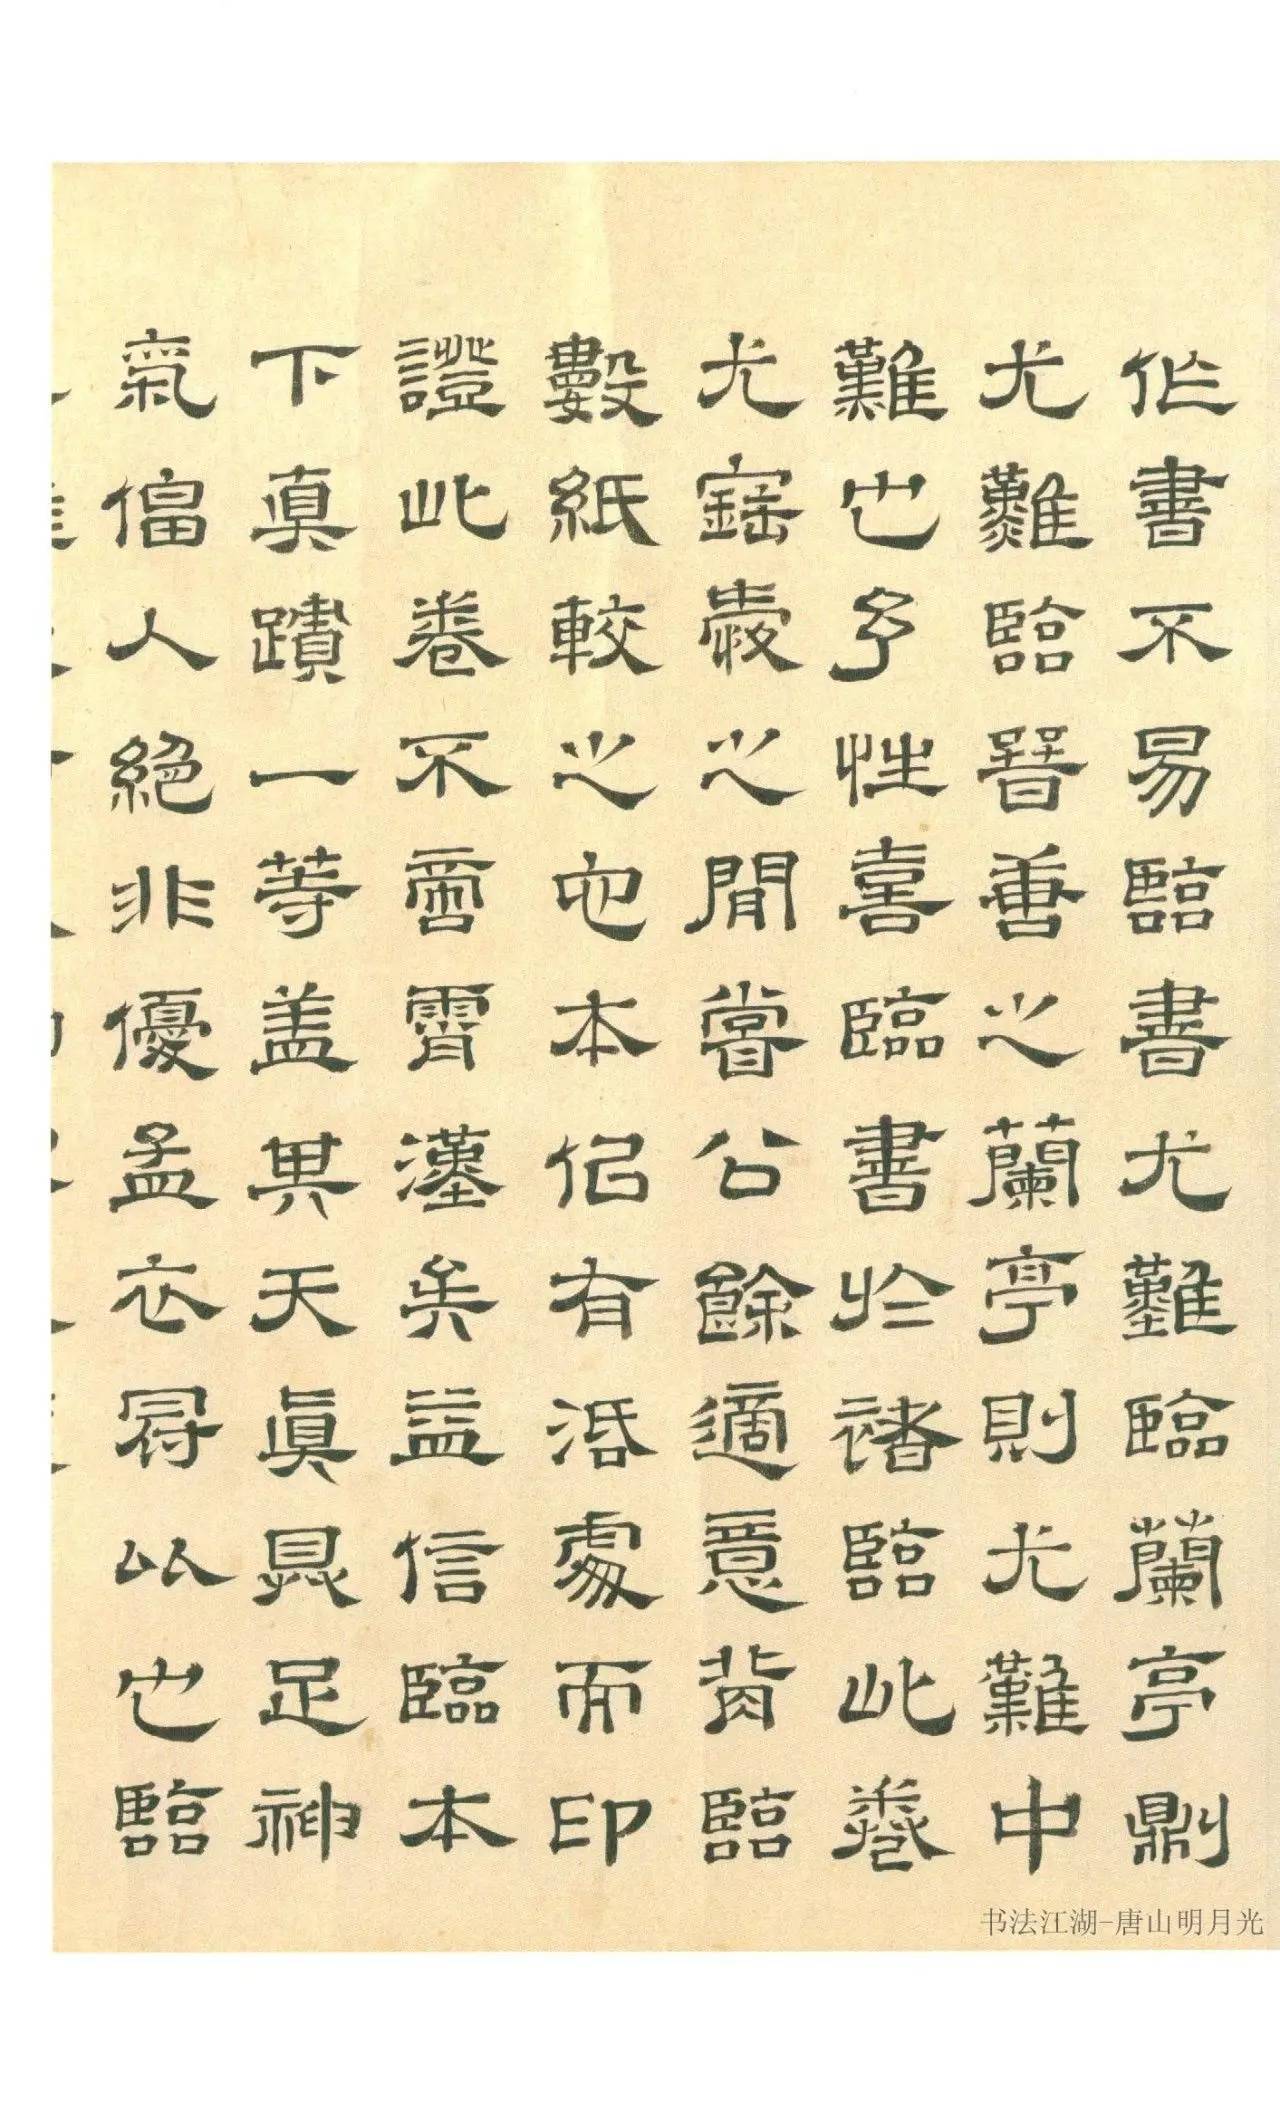 作書不易臨書尤難臨蘭亭則
尤難臨晉善之蘭亭則尤難中
難也予性喜臨書於諸臨此卷
尤寶愛之閒嘗公餘適意背臨
數紙較之它本似有活處而印
證此卷不啻霄漢矣益信臨本
下真蹟一等蓋其天真具足神
氣偪人絕非優孟衣冠以也臨
书法江湖-唐山明月光